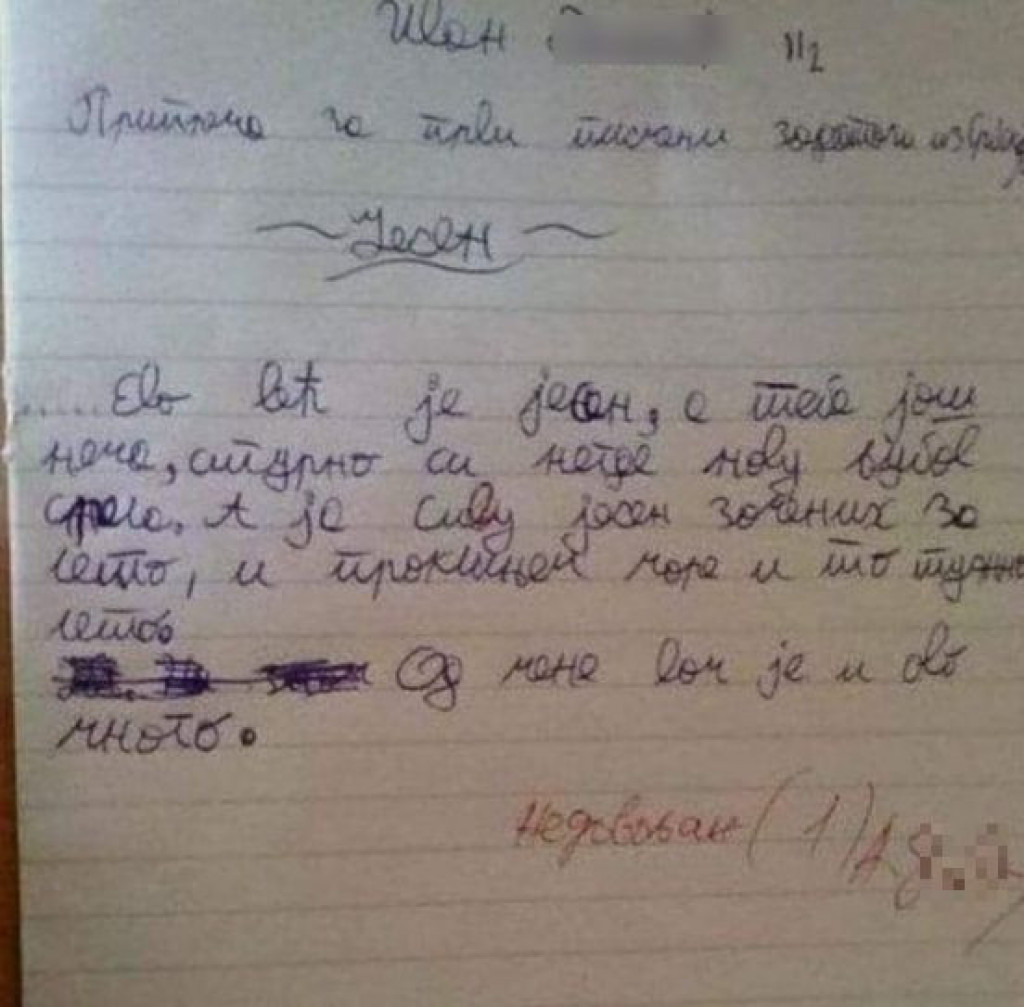 Иван II2
Припрема за први писмени задатак
Јесен
..... Ево већ је јесен, а тебе још
нема, сигурно си негде нову љубав
срела. А ја сиву јесен замених за
лето, и проклињем море и то тужно
лето.
Од мене вам је и ово
много.
Недовољан (1)